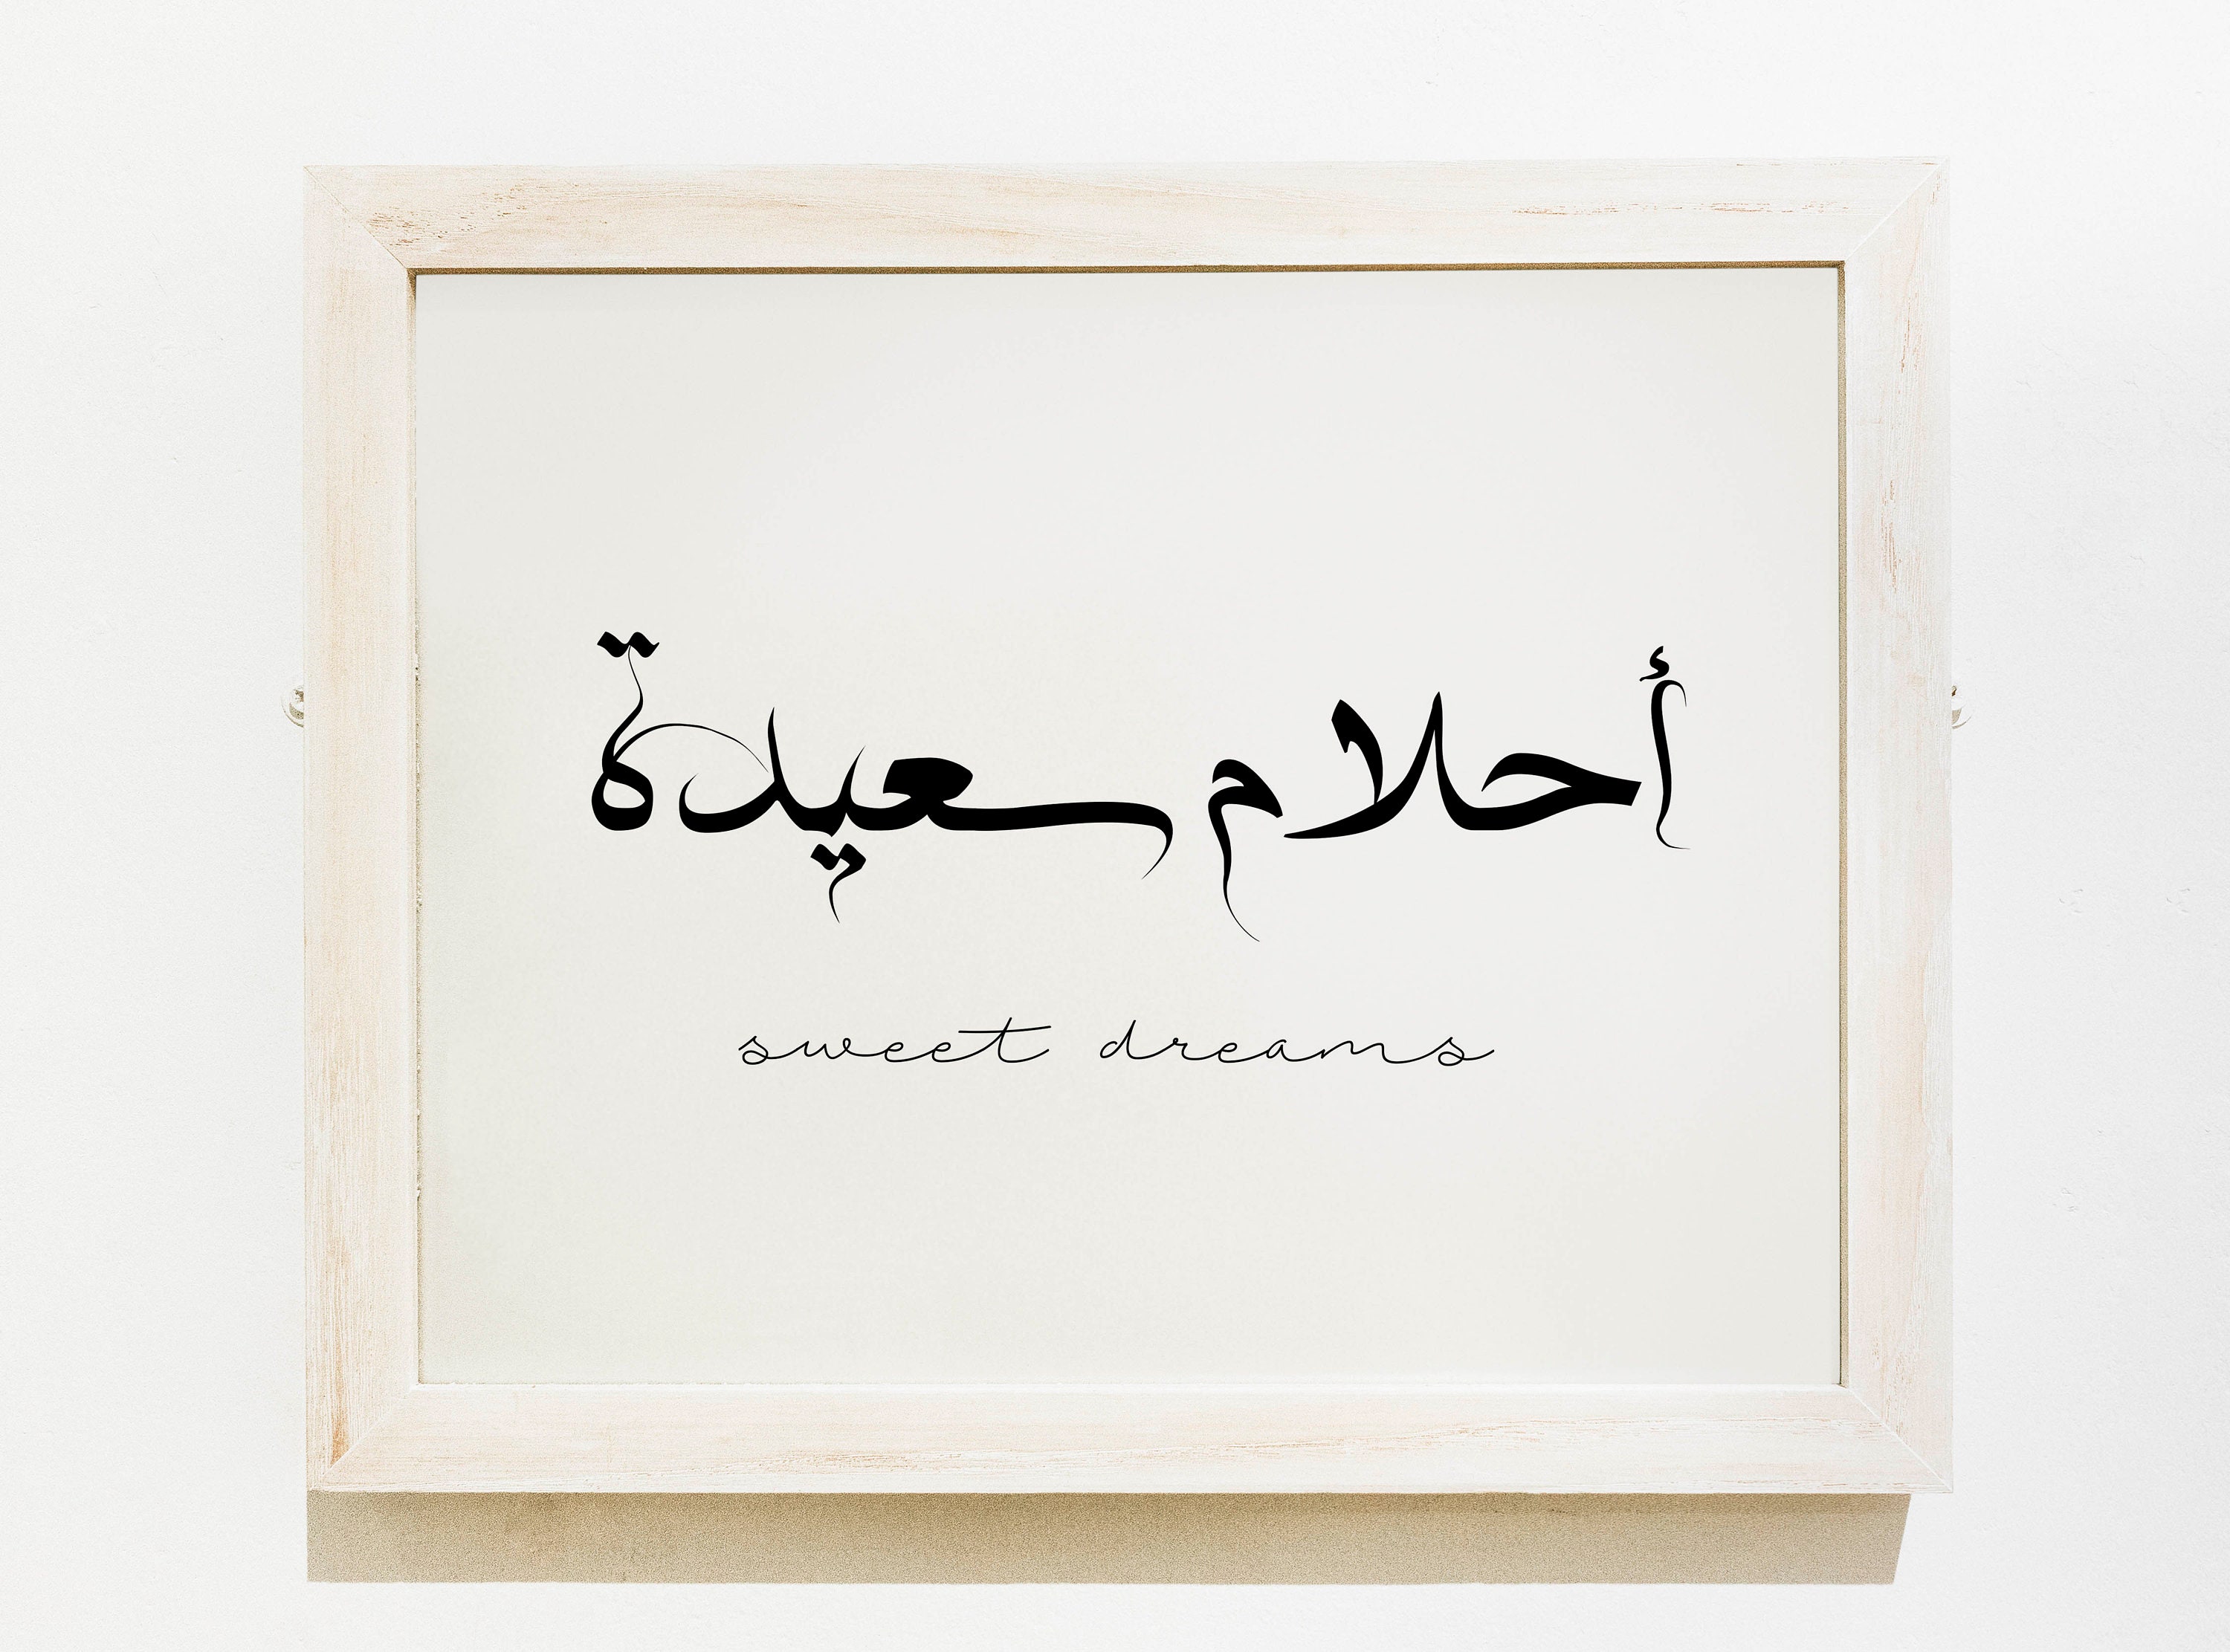 أحلام سعيدة
sweet dreams